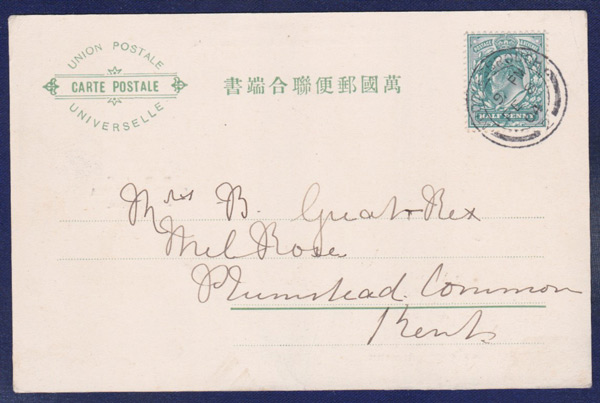 UNION POSTALE
CARTE POSTALE
UNIVERSELLE
書端合聯便郵國萬
HALF PENNY
Mrs B.
Mel Rose
Plumstead Common
Kent